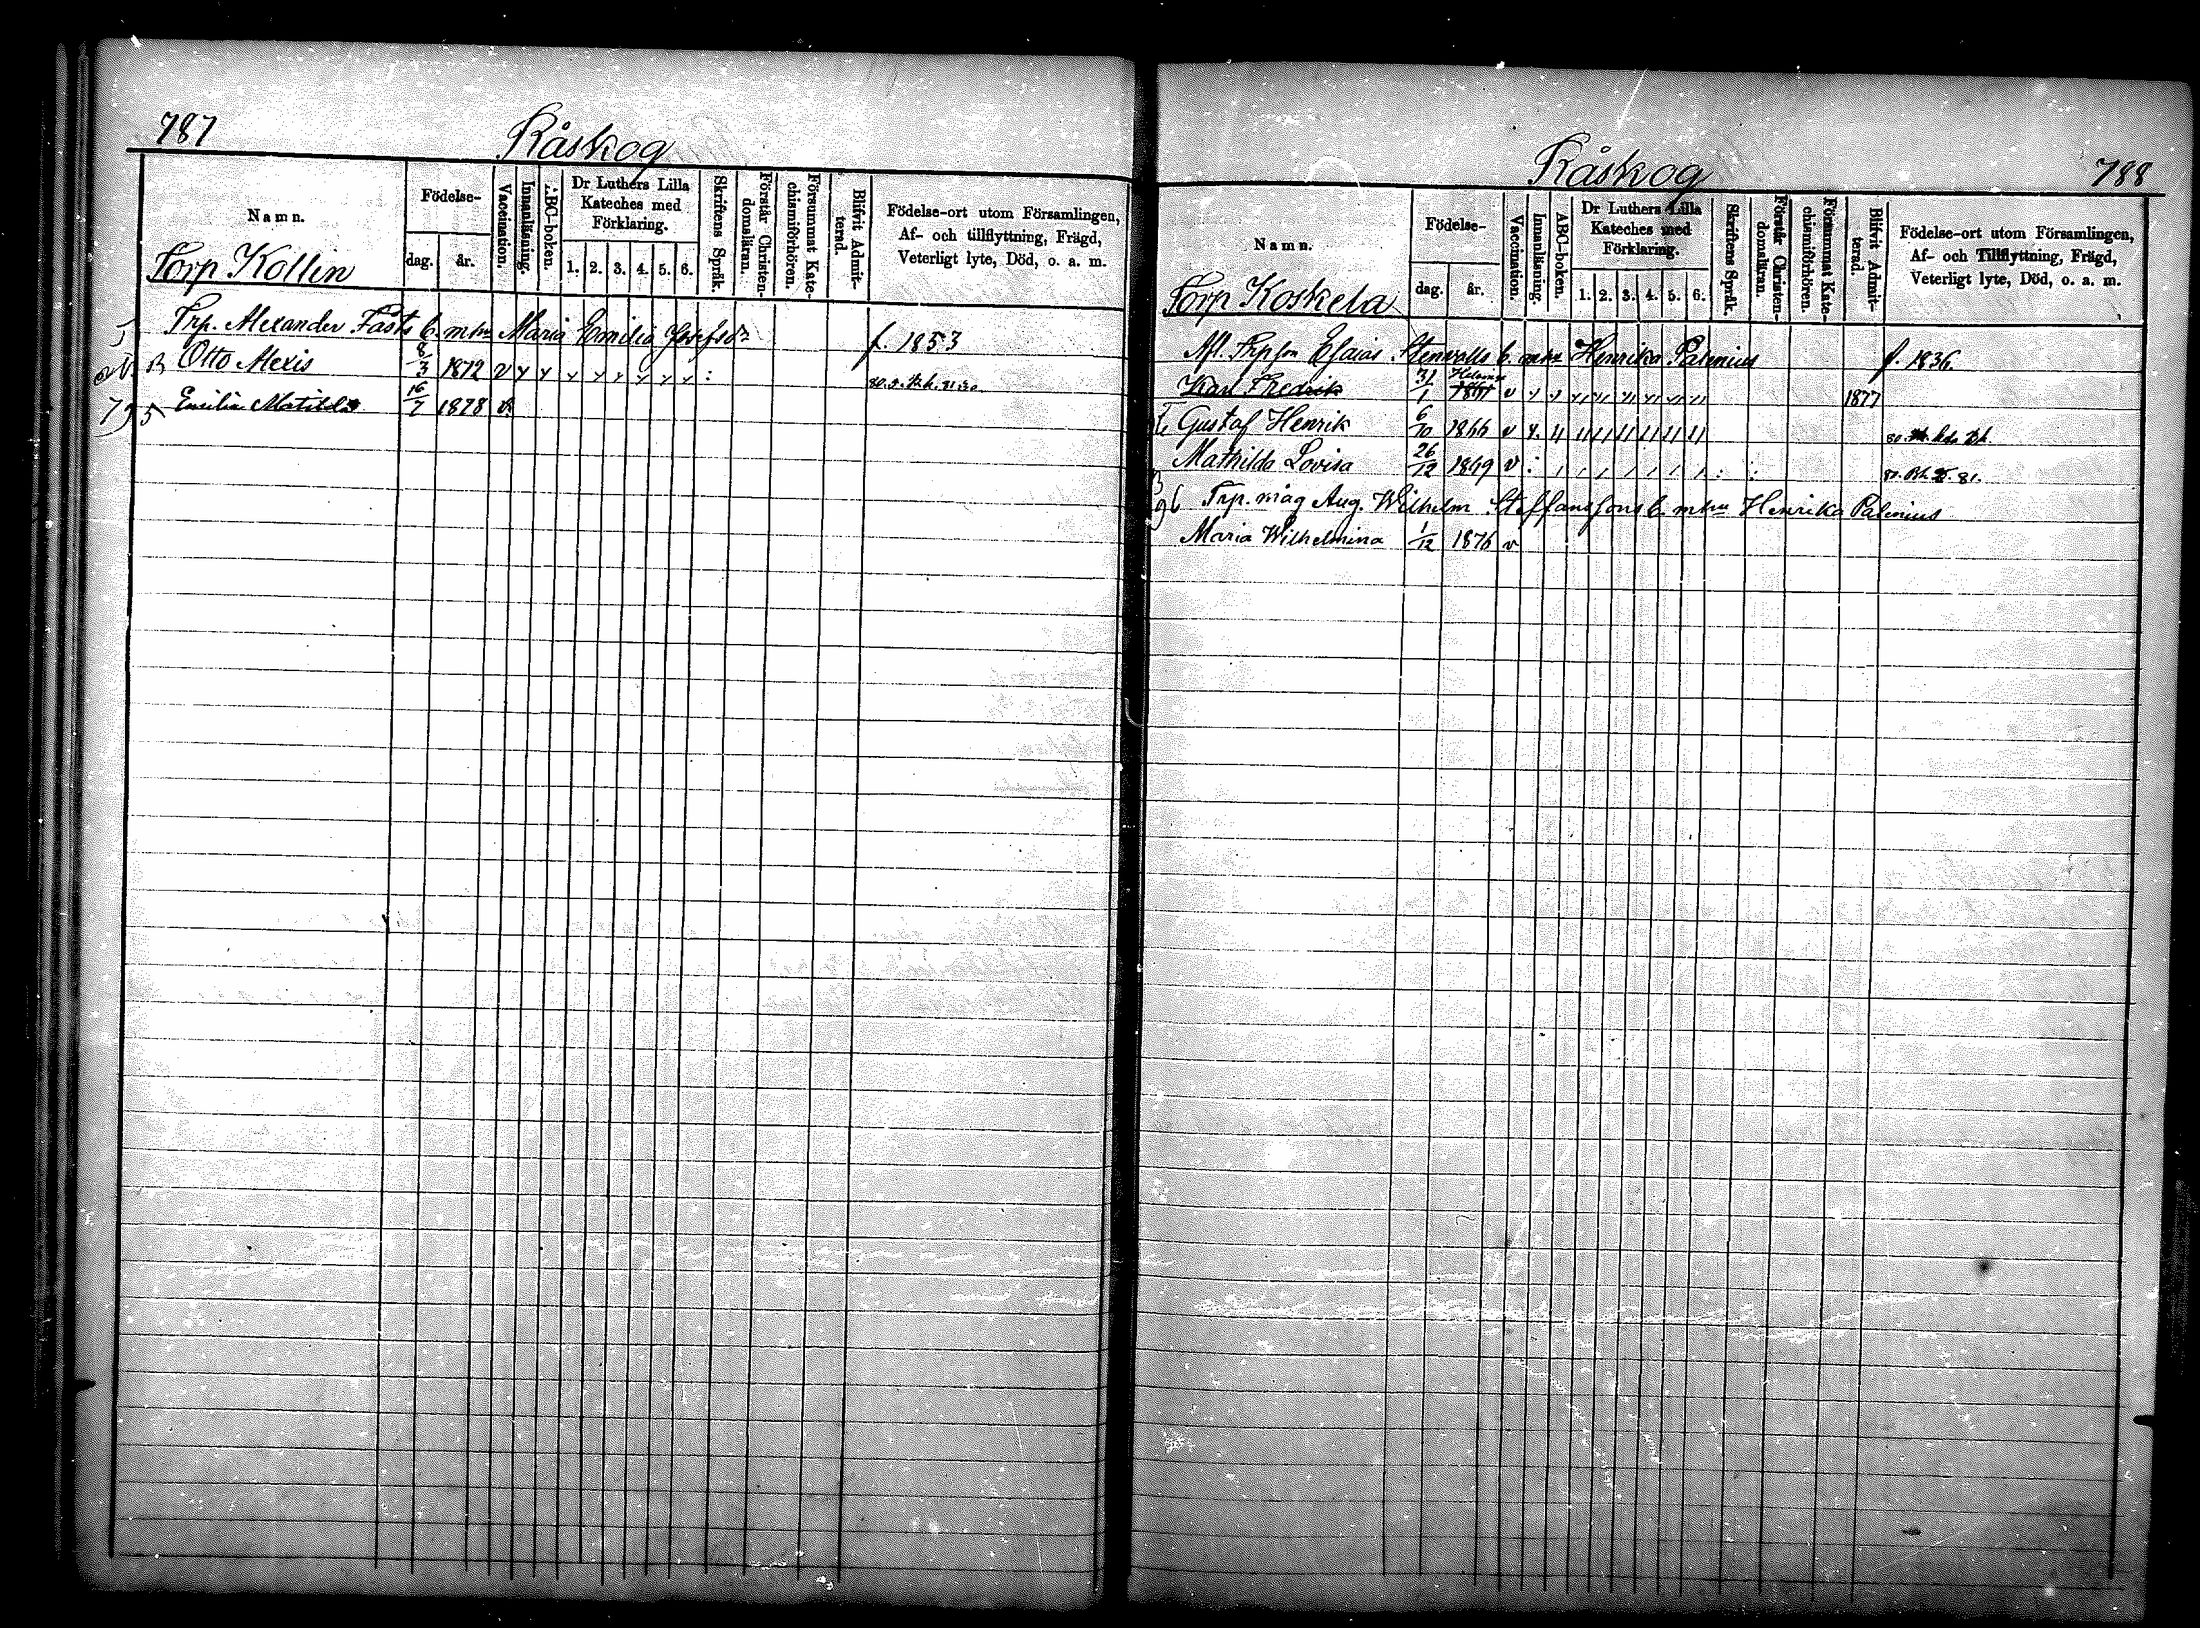 787
Råskog
Namn.
Födelse-
dag.
år.
Vaccination.
Innanläsning.
ABC-boken.
Dr Luthers Lilla
Kateches med
Förklaring.
1. 2. 3. 4. 5. 6.
Skriftens Språk.
Förstår Christen-
domsläran.
Försummat Kate-
chismiförhören.
Blifvit Admit-
terad.
Födelse-ort utom Församlingen,
Af- och tillflyttning, Frägd,
Veterligt lyte, Död, o. a. m.
Torp Kollin
Trp. Alexander Fasts b. m. hu Maria Emilia Josefsdr f. 1853
Otto Alexis 8/3 1872 v
Emilia Matilda 16/7 1878 v.
795
Råskog
788
Namn.
Födelse-
dag.
år.
Vaccination.
Innanläsning.
ABC-boken.
Dr Luthers Lilla
Kateches med
Förklaring.
1. 2. 3. 4. 5. 6.
Skriftens Språk.
Förstår Christen-
domsläran.
Försummat Kate-
chismiförhören.
Blifvit Admit-
terad.
Födelse-ort utom Församlingen,
Af- och Tillflyttning, Frägd,
Veterligt lyte, Död, o. a. m.
Torp Koskela
Afl. Trpson Esaias Stenvalls b. m. hu Henrika Palenius f. 1836.
Karl Fredrik 31/1 v 1877
Gustaf Henrik 6/10 1866 v
Mathilda Lovisa 26/12 1869 v
Trp. måg Aug. Wilhelm Steffanssons b. m. hu Henrika Palenius
Maria Wilhelmina 1/12 1876 v